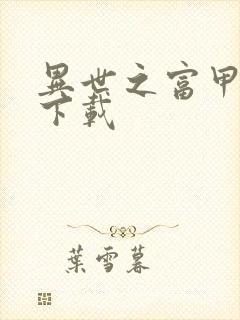 異世之富甲
下載
葉雪暮